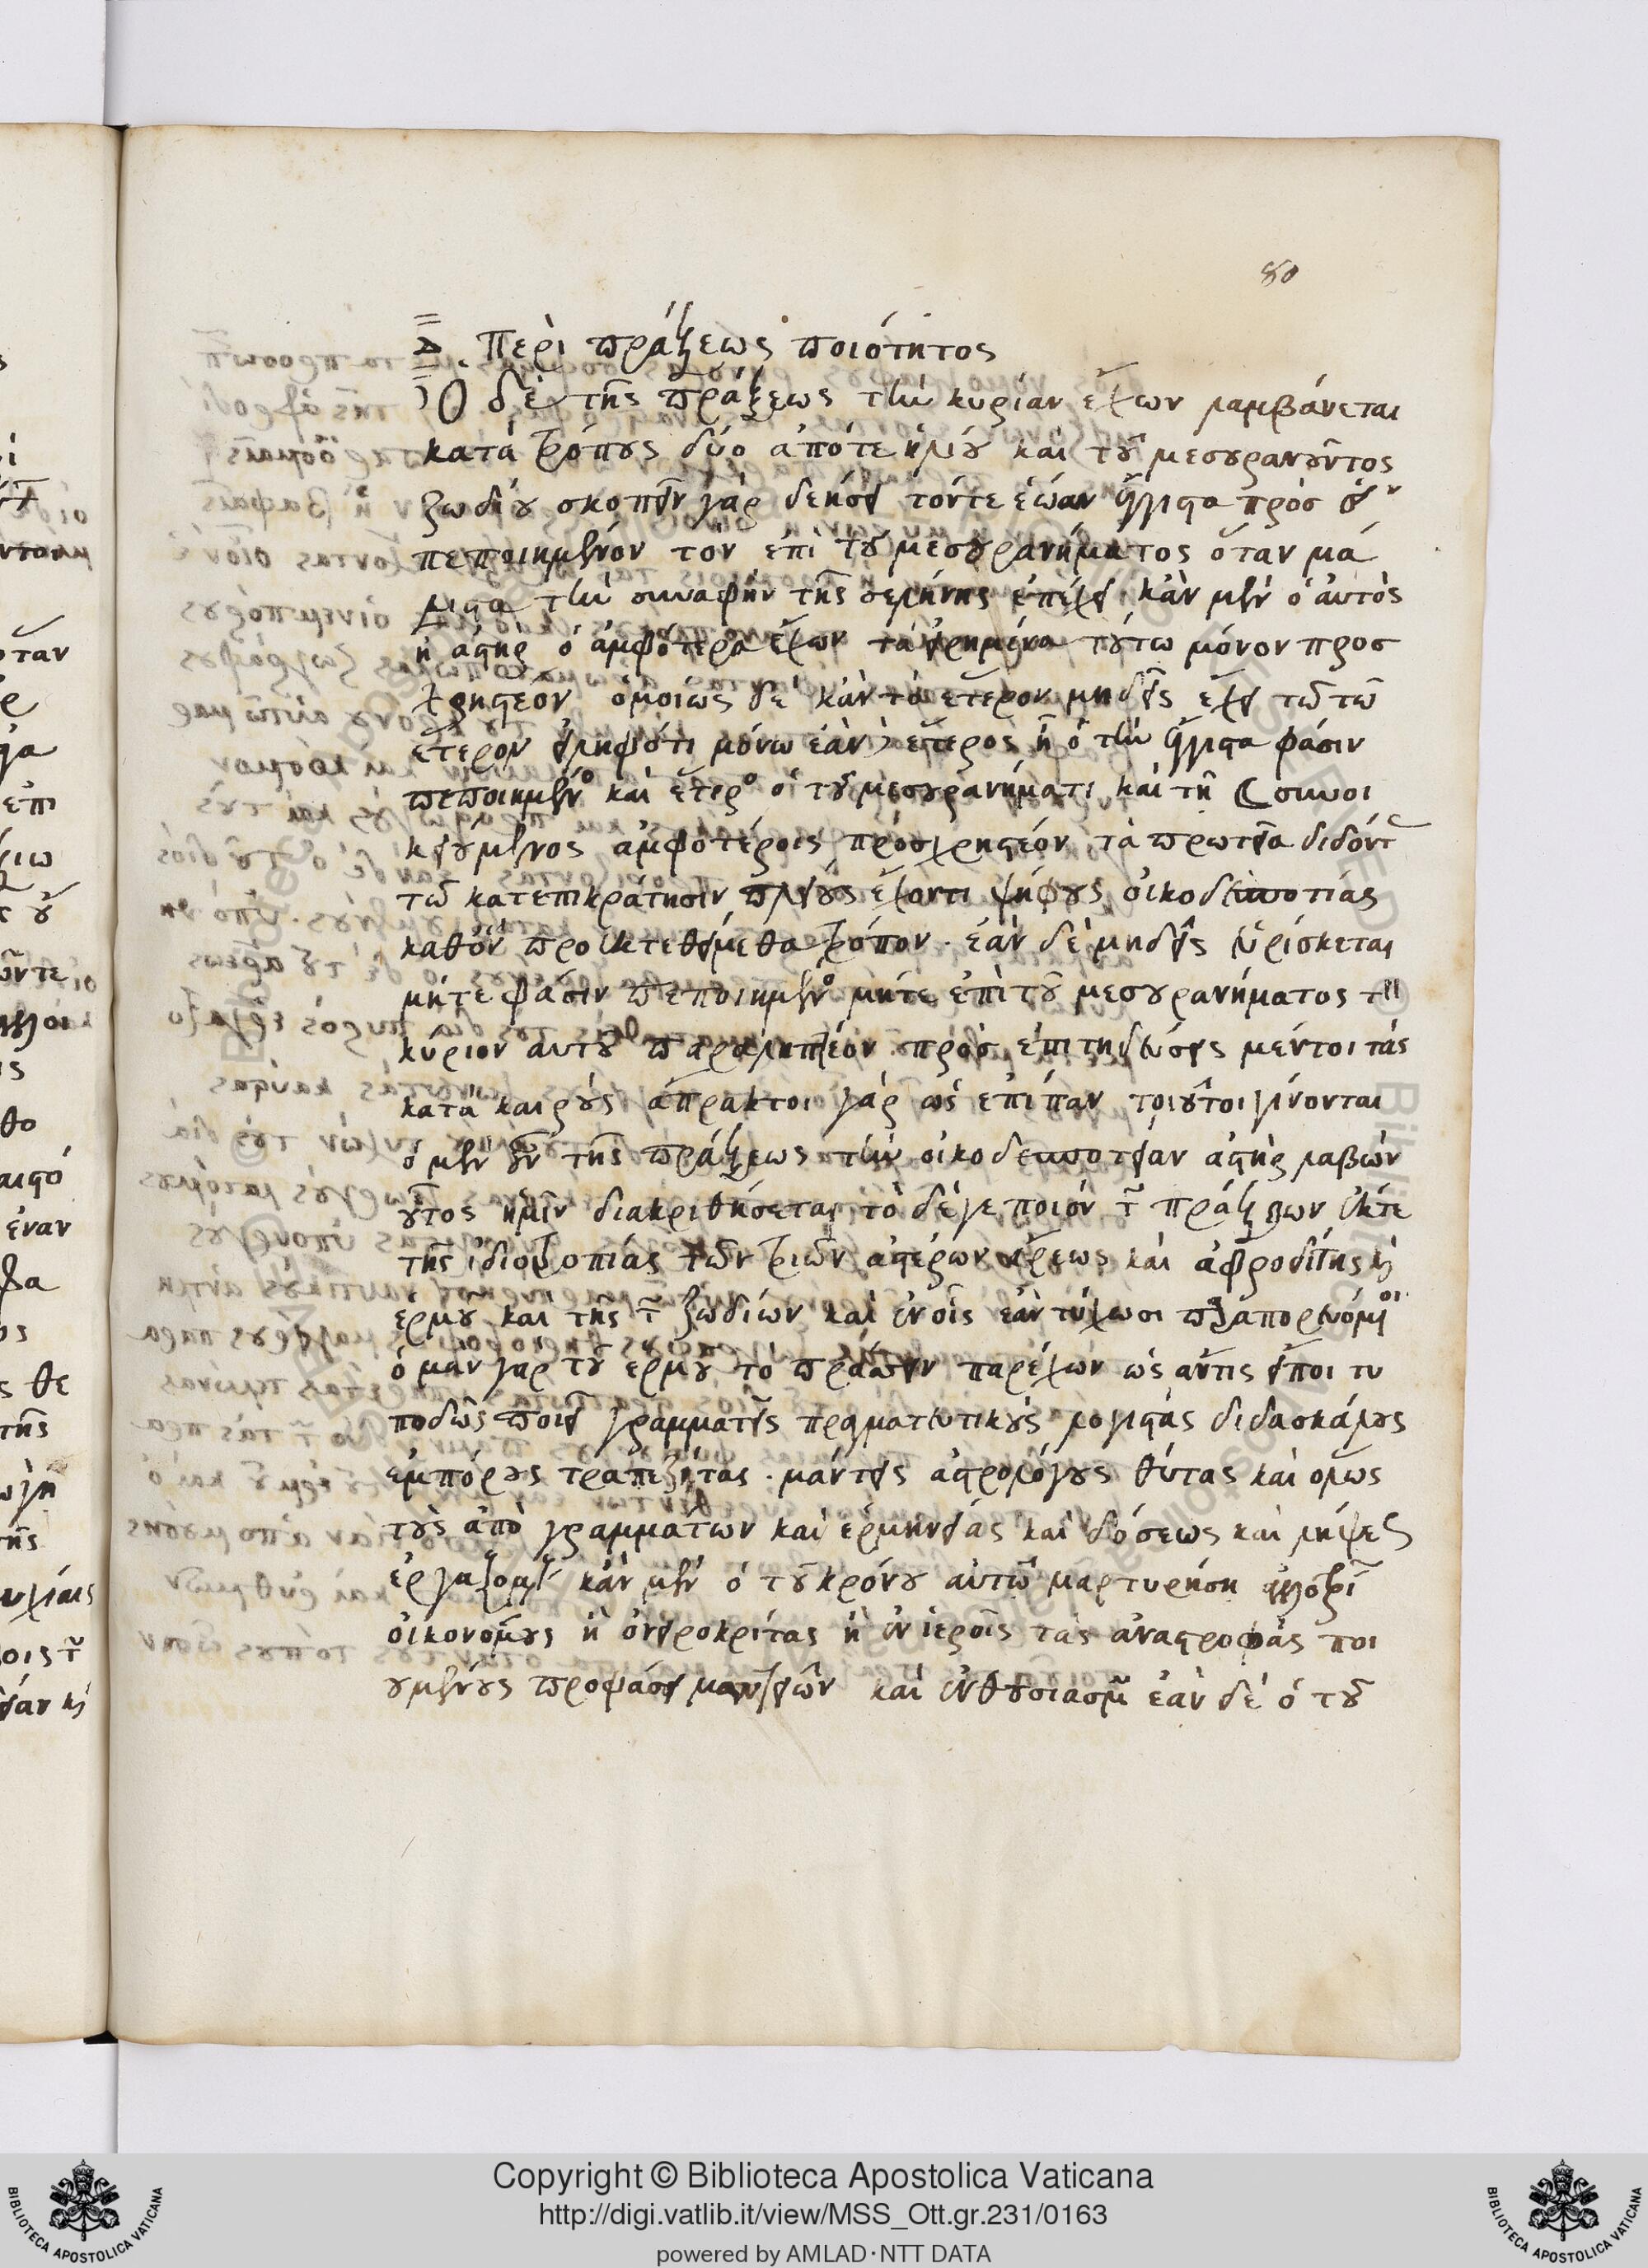 80
Δ. Περὶ πράξεως ποιότητος
Ὁ δὲ τῆς πράξεως τὴν κυρίαν ἔχων λαμβάνεται
κατὰ τρόπους δύο ἀπότε ἡλίου καὶ τοῦ μεσουρανοῦντος
ζωδίου σκοπεῖν γὰρ δεήσει τόντε ἑώαν ἔγγιστα πρὸς
πεποιημένον τὸν ἐπὶ τοῦ μεσουρανήματος ὅταν μά
λιστα τὴν συναφὴν τῆς σελήνης ἐπέχει κἂν μὲν ὁ αὐτὸς
ἢ ἀστὴρ ὁ ἀμφότερα ἔχων τὰ εἰρημένα τούτω μόνον προσ
χρηστέον ὁμοίως δὲ κἂν τὸ ἕτερον μηδεὶς ἔχει τῶ τῶ
ἕτερον εἰληφότι μόνω ἐὰν ἕτερος ἢ ὁ τὴν ἔγγιστα φάσιν
πεποιημένος καὶ ἕτερος ὁ τοῦ μεσουρανήματι καὶ τῆ ☾ συνοι
κειούμενος ἀμφοτέροις προσχρηστέον τὰ πρωτεῖα διδόντ
τῶ κατεπικράτησιν πλείους ἔχοντι ψήφους οἰκοδεσποτίας
καθὃν προεκτεθείμεθα τρόπον. ἐὰν δὲ μηδεὶς εὑρίσκεται
μήτε φάσιν πεποιημένος μήτε ἐπὶ τοῦ μεσουρανήματος τ
κύριον αὐτοῦ παραληπτέον πρὸς ἐπιτηδεύσεις μέντοι τὰς
κατὰ καιροὺς ἄπρακτοι γὰρ ὡς ἐπίπαν τοιοῦτοι γίνονται
ὁ μὲν οὖν τῆς πράξεως τὴν οἰκοδεσποτείαν ἀστὴρ λαβὼν
οὗτος ἡμῖν διακριθήσεται τὸ δέγε ποιὸν τ πράξεων ἔκτε
τῆς ἰδιοτροπίας τῶν τριῶν ἀστέρων ἄρεως καὶ ἀφροδίτης κ
ἑρμοῦ καὶ τῆς τ ζωδίων καὶ ἐν οἷς ἐὰν τύχωσι παραπορευόμοι
ὁ μὰν γὰρ τοῦ ἑρμοῦ τὸ πράσσειν παρέχων ὡς ἄντις εἴποι τυ
ποδῶς ποιεῖ γραμματεῖς πραγματευτικοὺς λογιστὰς διδασκάλους
ἐμπόρους τραπεζίτας. μάντεις ἀστρολόγους θύτας καὶ ὅλως
τοὺς ἀπὸ γραμμάτων καὶ ἑρμηνείας καὶ δόσεως καὶ λήψες
ἐργαζομ κἂν μὲν ὁ τοῦ κρόνου αὐτῶ μαρτυρήση ἀλλοτρι
οἰκονόμους ἢ ὀνειροκρίτας ἢ ἐν ἱεροῖς τὰς ἀναστροφὰς ποι
ουμένους προφάσει μαντειῶν καὶ ἐνθουσιασμ ἐὰν δὲ ὁ τοῦ
Copyright © Biblioteca Apostolica Vaticana
http://digi.vatlib.it/view/MSS_Ott.gr.231/0163
powered by AMLAD·NTT DATA
BIBLIOTECA APOSTOLICA VATICANA
BIBLIOTECA APOSTOLICA VATICANA